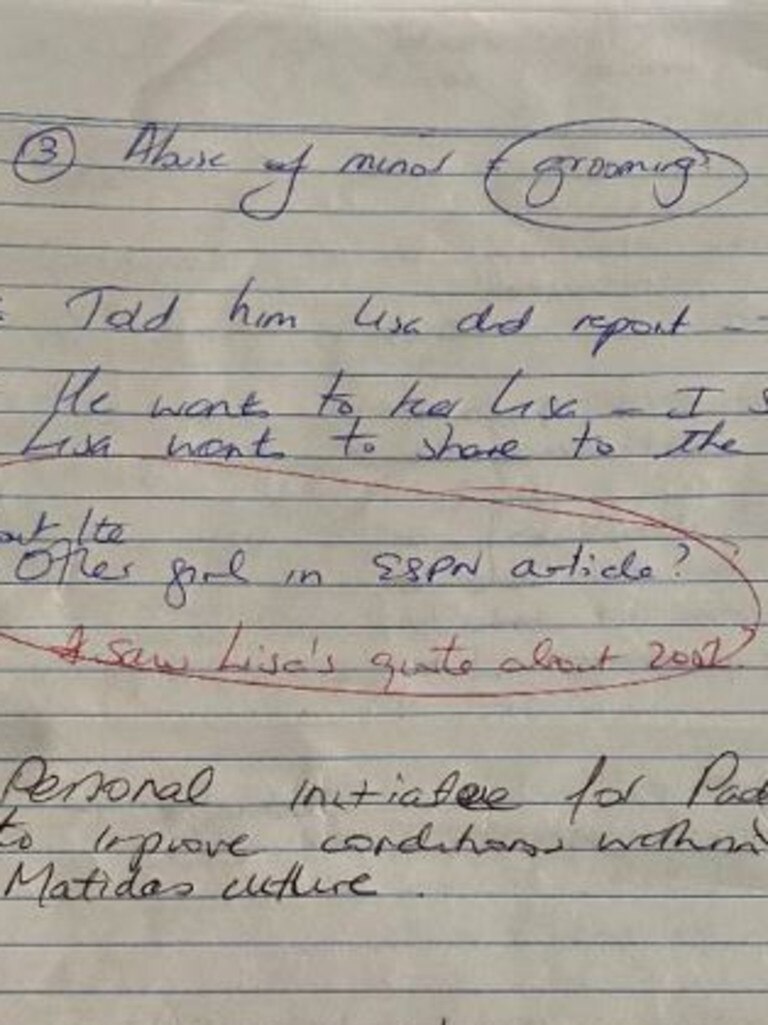 ③ Abuse of minor + grooming?
Told him Lisa did report --
He wants to hear Lisa - I s
Lisa wants to share to the
out Ite
Other girl in ESPN article?
* Saw Lisa's quote about 2002.
Personal initiative for Pad
to improve conditions within
Matildas culture.